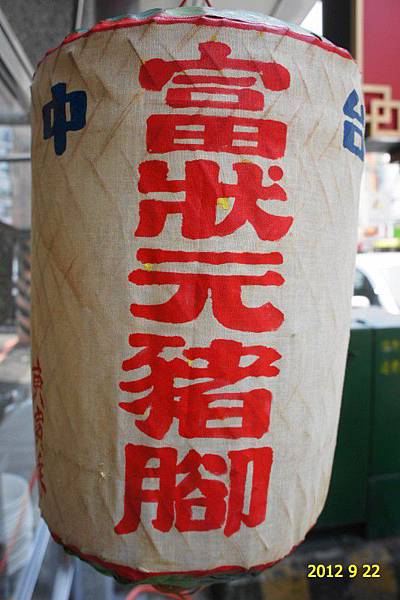 富狀元豬腳
台
中
2012 9 22